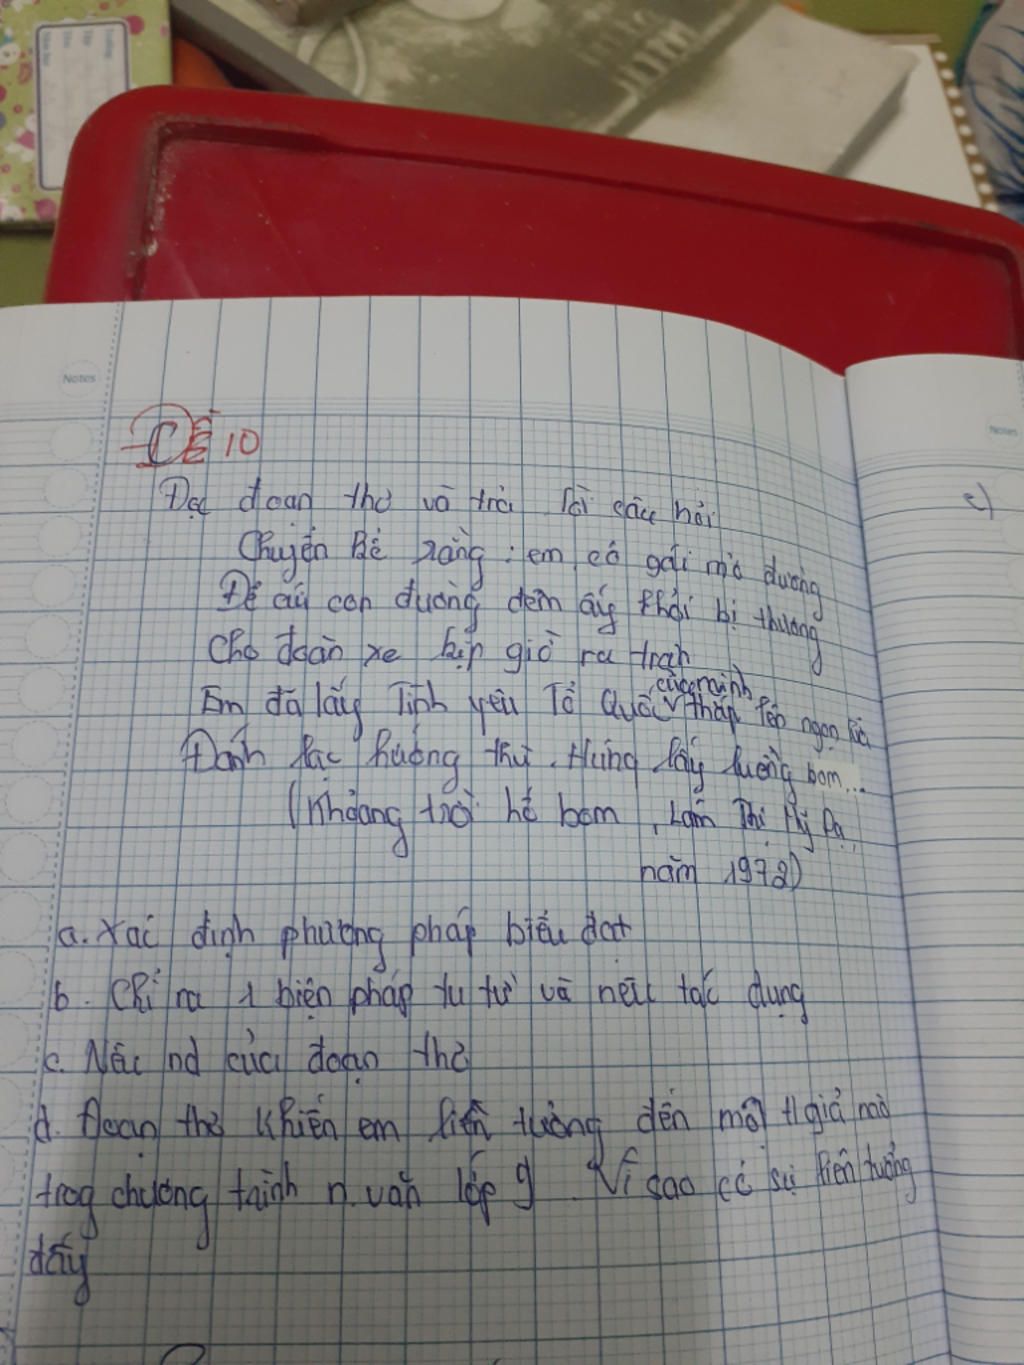 Notes
ĐỀ 10
Đọc đoạn thơ và trả lời câu hỏi
Chuyện kể rằng: em cô gái mở đường
Để cứu con đường đêm ấy khỏi bị thương
Cho đoàn xe kịp giờ ra trận
Em đã lấy Tình yêu Tổ Quốc của mình thắp lên ngọn lửa
Đánh lạc hướng thù. Hứng lấy luồng bom...
(Khoảng trời hố bom, Lâm Thị Mỹ Dạ,
năm 1972)
a. Xác định phương pháp biểu đạt
b. Chỉ ra 1 biện pháp tu từ và nêu tác dụng
c. Nêu nd của đoạn thơ
d. Đoạn thơ khiến em liên tưởng đến một tgiả nào
trog chương trình n.văn lớp 9. Vì sao có sự liên tưởng
đấy
Notes
c)